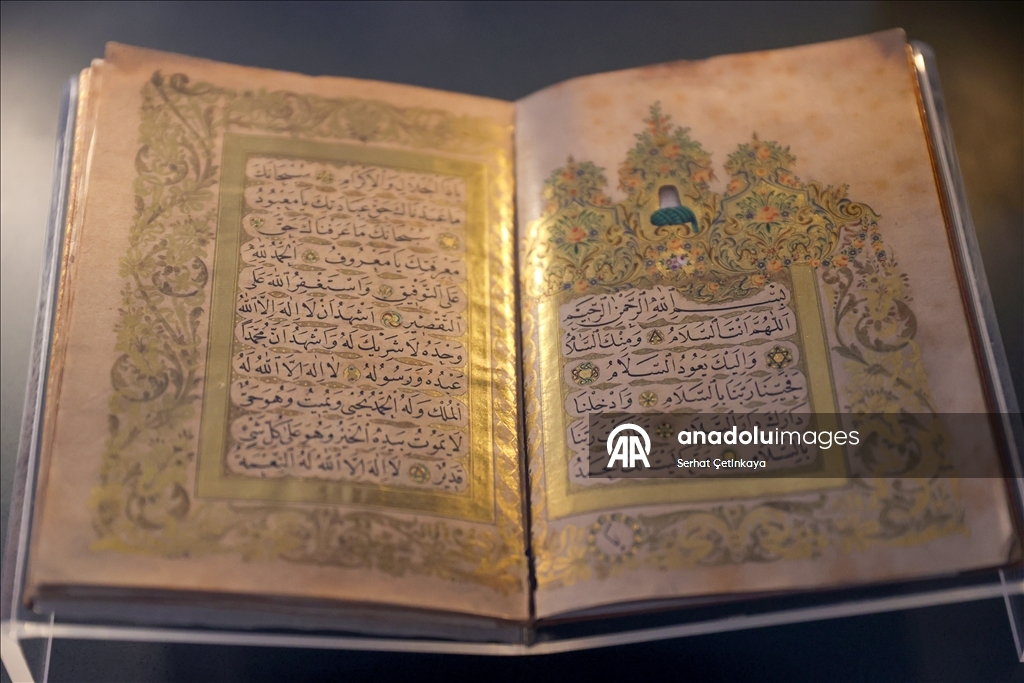 بسم الله الرحمن الرحيم
اللهم انت السلام ومنك السلام
واليك يعود السلام
فحينا ربنا بالسلام وادخلنا
يا ذا الجلال والاكرام سبحانك
ما عبدناك حق عبادتك يا معبود
سبحانك ما عرفناك حق
معرفتك يا معروف الحمد لله
على التوفيق واستغفر الله على
التقصير اشهد ان لا اله الا الله
وحده لا شريك له واشهد ان محمدا
عبده ورسوله لا اله الا الله له
الملك وله الحمد يحيي ويميت وهو حي
لا يموت بيده الخير وهو على كل شئ
قدير لا اله الا الله له النعمة
anadoluimages
Serhat Çetinkaya